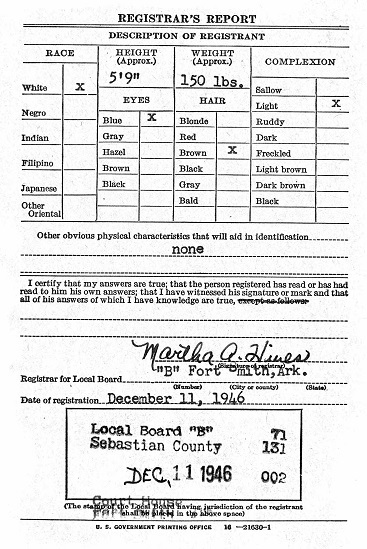 REGISTRAR'S REPORT
DESCRIPTION OF REGISTRANT
RACE
HEIGHT (Approx.)
WEIGHT (Approx.)
COMPLEXION
5'9"
150 lbs.
White X
Negro
Indian
Filipino
Japanese
Other Oriental
EYES
Blue X
Gray
Hazel
Brown
Black
HAIR
Blonde
Red
Brown X
Black
Gray
Bald
Sallow
Light X
Ruddy
Dark
Freckled
Light brown
Dark brown
Black
Other obvious physical characteristics that will aid in identification
none
I certify that my answers are true; that the person registered has read or has had
read to him his own answers; that I have witnessed his signature or mark and that
all of his answers of which I have knowledge are true, except as follows:
Martha A. Hines
(Signature of registrar)
Registrar for Local Board "B" Fort Smith, Ark.
(Number) (City or county) (State)
Date of registration December 11, 1946
Local Board "B" 71
Sebastian County 131
DEC 11 1946 002
Court House
(The stamp of the Local Board having jurisdiction of the registrant
shall be placed in the above space)
U. S. GOVERNMENT PRINTING OFFICE 16—21630-1